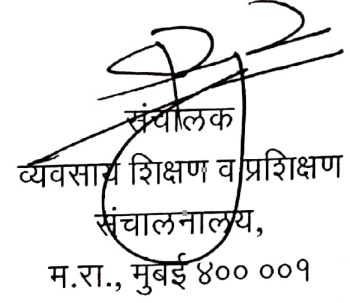 संचालक
व्यवसाय शिक्षण व प्रशिक्षण
संचालनालय,
म.रा., मुंबई ४०० ००१